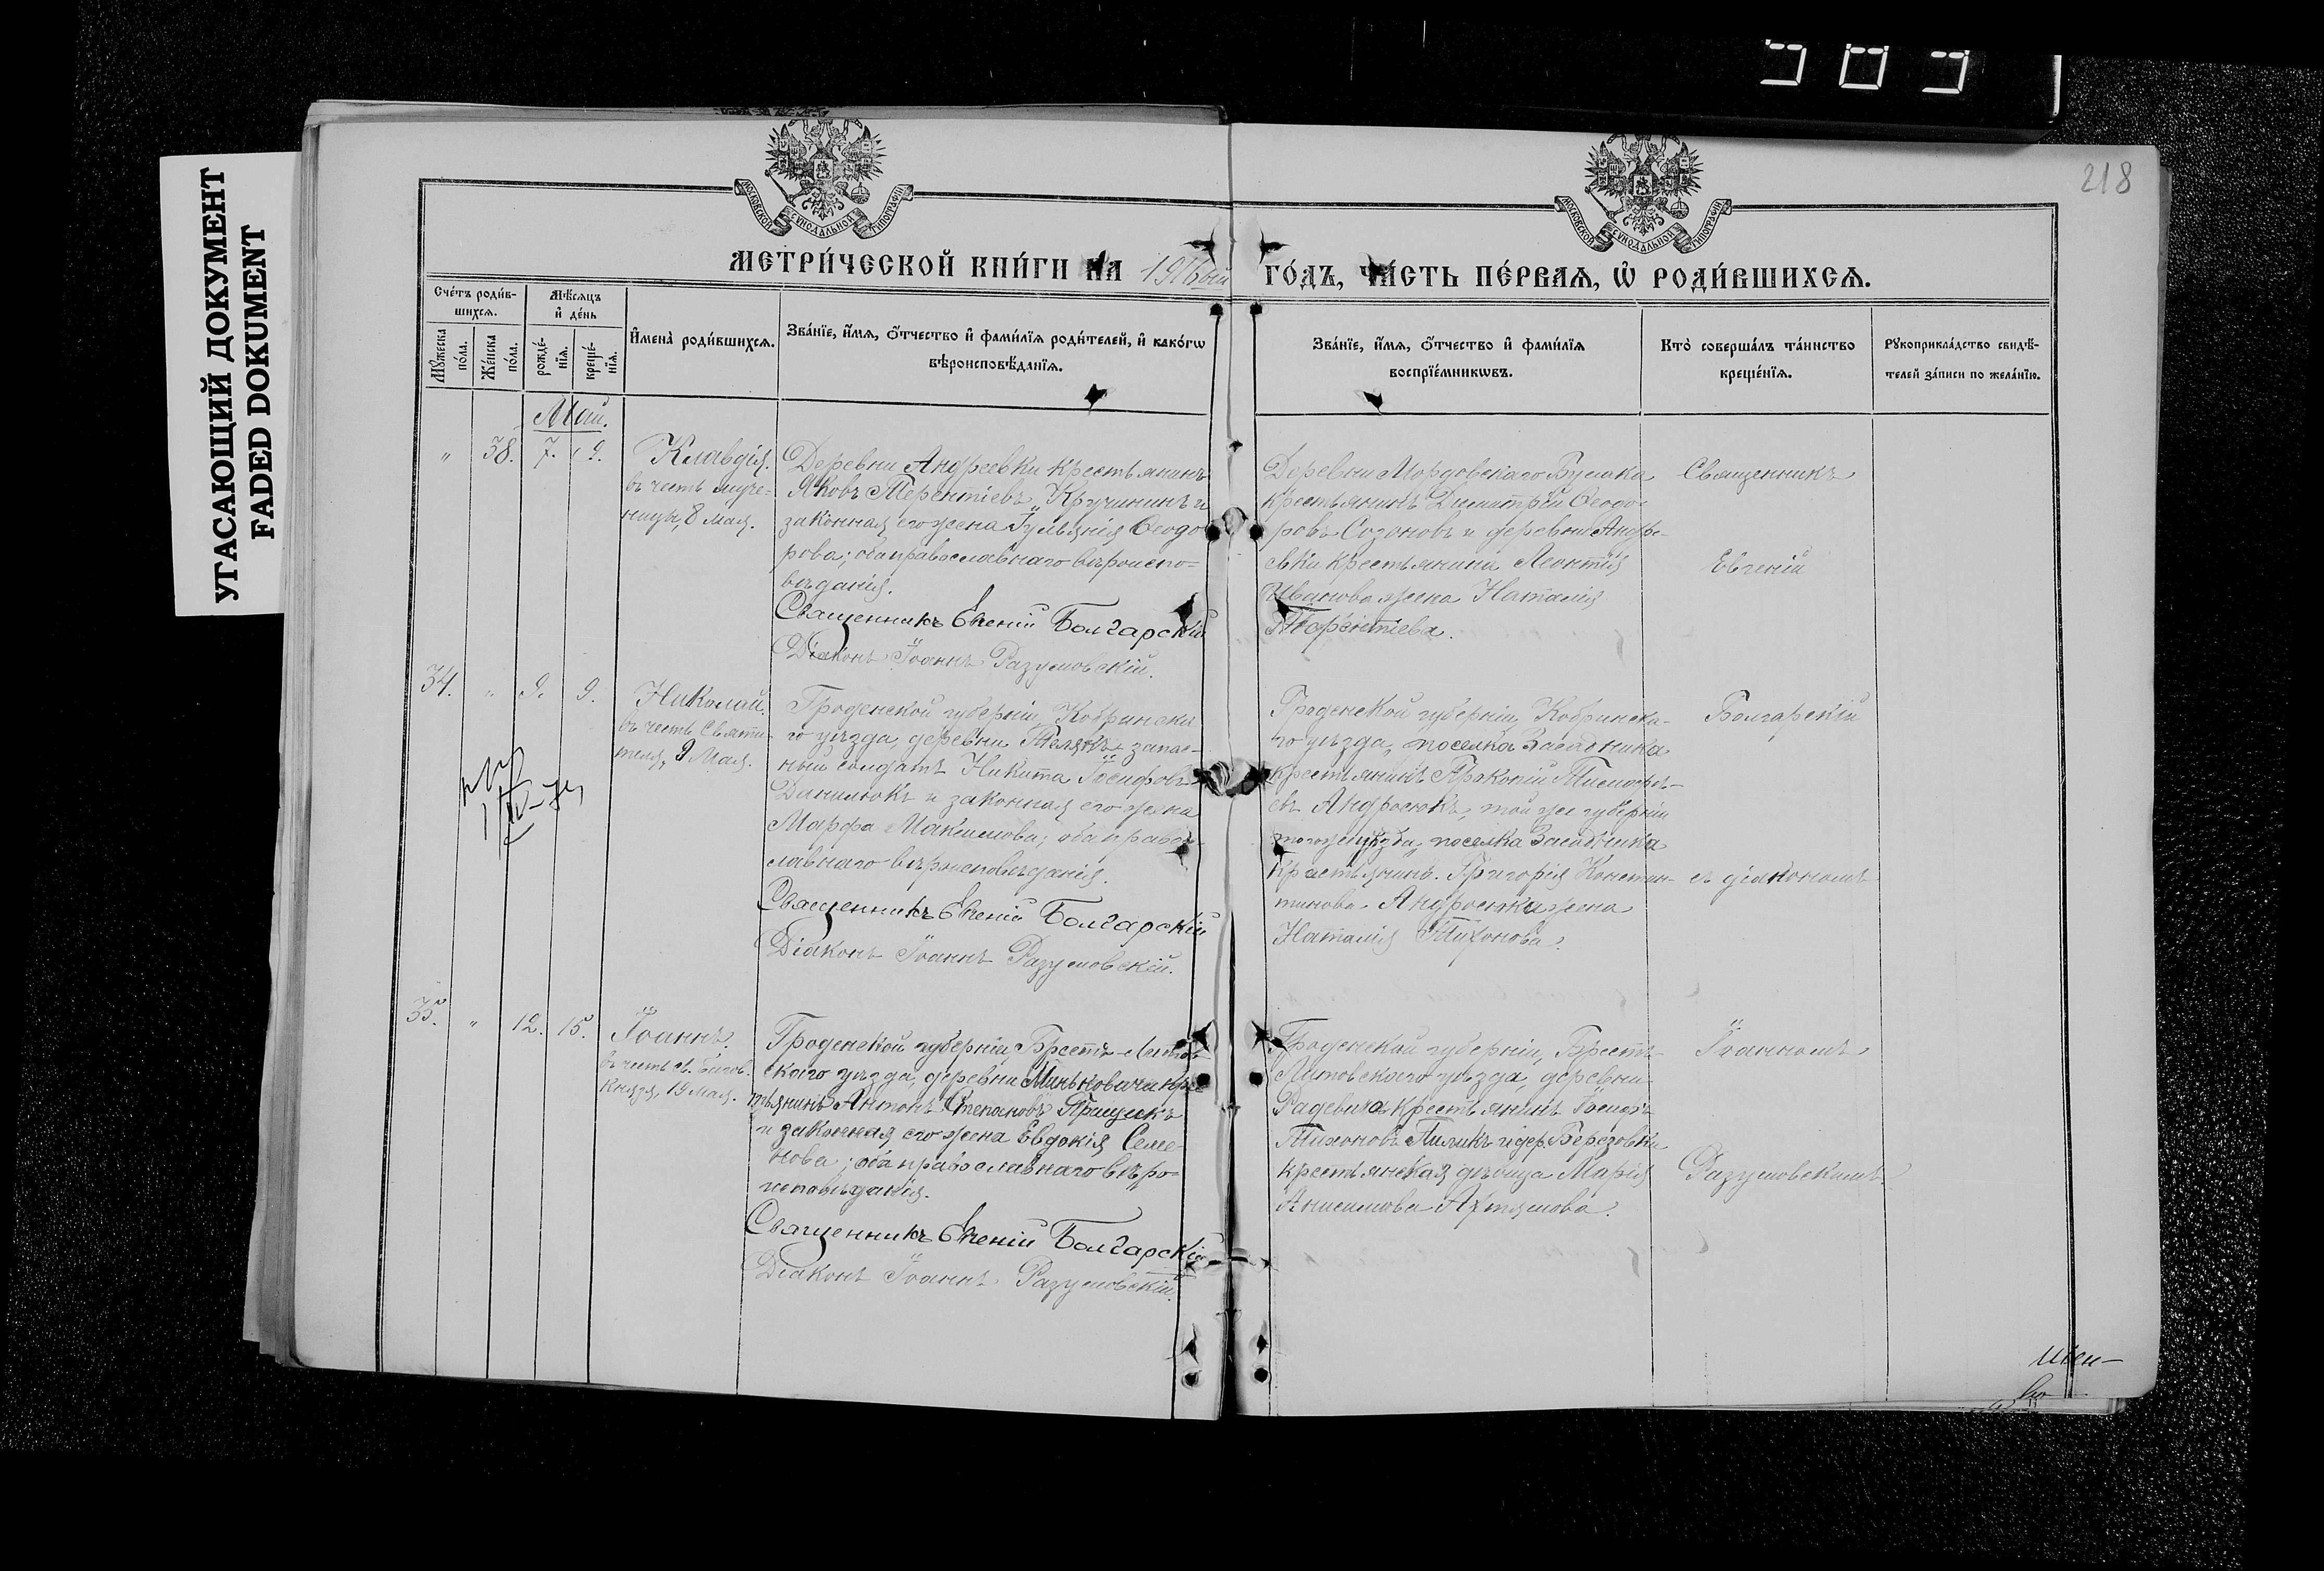 УГАСАЮЩИЙ ДОКУМЕНТ
FADED DOKUMENT
218
МОСКОВСКОЙ СѴНОДАЛЬНОЙ ТИПОГРАФІИ
МОСКОВСКОЙ СѴНОДАЛЬНОЙ ТИПОГРАФІИ
МЕТРИ́ЧЕСКОЙ КНИ́ГИ НА 1916ый ГО́ДЪ, ЧА́СТЬ ПЕ́РВАѦ, Ѡ҆ РОДИ́ВШИХСѦ.
Сче́тъ роди́в-
шихсѧ.
Мꙋ́жеска
по́ла.
Же́нска
по́ла.
Мѣ́сѧцъ
и҆ де́нь
рожде́-
нїѧ.
креще́-
нїѧ.
И҆мена̀ роди́вшихсѧ.
Зва́нїе, и҆́мѧ, ѻ҆́тчество и҆ фами́лїѧ роди́телей, и҆ како́гѡ
вѣроисповѣ́данїѧ.
Зва́нїе, и҆́мѧ, ѻ҆́тчество и҆ фами́лїѧ
воспрїе́мникѡвъ.
Кто̀ соверша́лъ та́инство
креще́нїѧ.
Рꙋкоприкла́дство свидѣ́-
телей за́писи по жела́нїю.
Май.
" 38. 7. 9.
Клавдія.
въ честь муче-
ницы, 8 Мая.
Деревни Андреевки крестьянинъ
Яковъ Терентіевъ Кручининъ и
законная его жена Іульянія Ѳеодо
рова; оба православнаго вѣроиспо-
вѣданія.
Священникъ Евгеній Болгарскій
Діаконъ Іоаннъ Разумовскій.
Деревни Мордовскаго
крестьянинъ Димитрій Ѳеодо-
ровъ Созоновъ и деревни Андре-
евки крестьянина Леонтія
Иванова жена Наталія
Терентіева.
Священникъ
Евгеній
34. " 9. 9.
Николай.
въ честь Святи-
теля, 9 Мая.
Гродненской губерніи, Кобринска
го уѣзда, деревни запас-
ный солдатъ Никита Іосифовъ
Данилюкъ и законная его жена
Марфа Максимова; оба правос-
лавнаго вѣроисповѣданія.
Священникъ Евгеній Болгарскій
Діаконъ Іоаннъ Разумовскій.
Гродненской губерніи, Кобринска-
го уѣзда, поселка
крестьянинъ Прокопій Тимофе-
евъ Андросюкъ, той же губерніи
того же уѣзда, поселка
крестьянинъ. Григорія Констан-
тинова Андросюка жена
Наталія Тихонова.
Болгарскій
съ діакономъ
35. " 12. 15.
Іоаннъ.
въ честь св. Благов.
Князя, 19 Мая.
Гродненской губерніи Брестъ-Литов
скаго уѣзда, деревни Миньковичи крес
тьянинъ Антонъ Степановъ
и законная его жена Евдокія Семе-
нова; оба православнаго вѣро-
исповѣданія.
Священникъ Евгеній Болгарскій
Діаконъ Іоаннъ Разумовскій.
Гродненской губерніи, Брестъ-
Литовскаго уѣзда, деревни
крестьянинъ Іосифъ
Тихоновъ и дер. Березовки
крестьянская дѣвица Марія
Анисимова Ахтямова.
Іоанномъ
Разумовскимъ